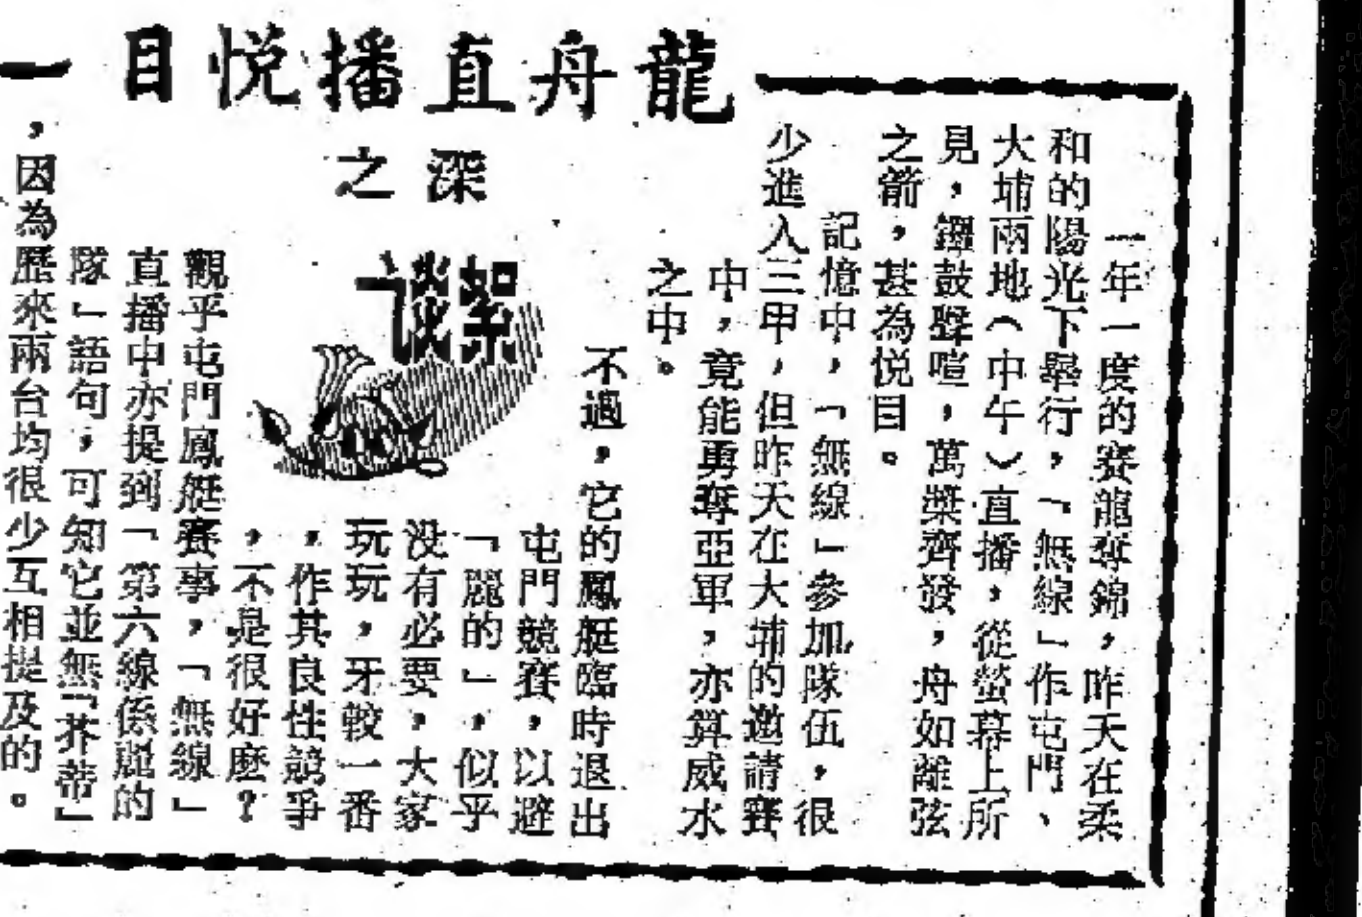 龍舟直播悅目
深之
絮談
一年一度的賽龍奪錦，昨天在柔
和的陽光下舉行，「無線」作屯門、
大埔兩地（中午）直播，從螢幕上所
見，鑼鼓聲喧，萬槳齊發，舟如離弦
之箭，甚為悅目。
記憶中，「無線」參加隊伍，很
少進入三甲，但昨天在大埔的邀請賽
中，竟能勇奪亞軍，亦算威水
之中。
不過，它的鳳艇臨時退出
屯門競賽，以避
「麗的」，似乎
没有必要，大家
玩玩，牙較一番
，作其良性競爭
，不是很好麽？
觀乎屯門鳳艇賽事，「無線」
直播中亦提到「第六線係麗的
隊」語句，可知它並無「芥蒂」
，因為歷來兩台均很少互相提及的。